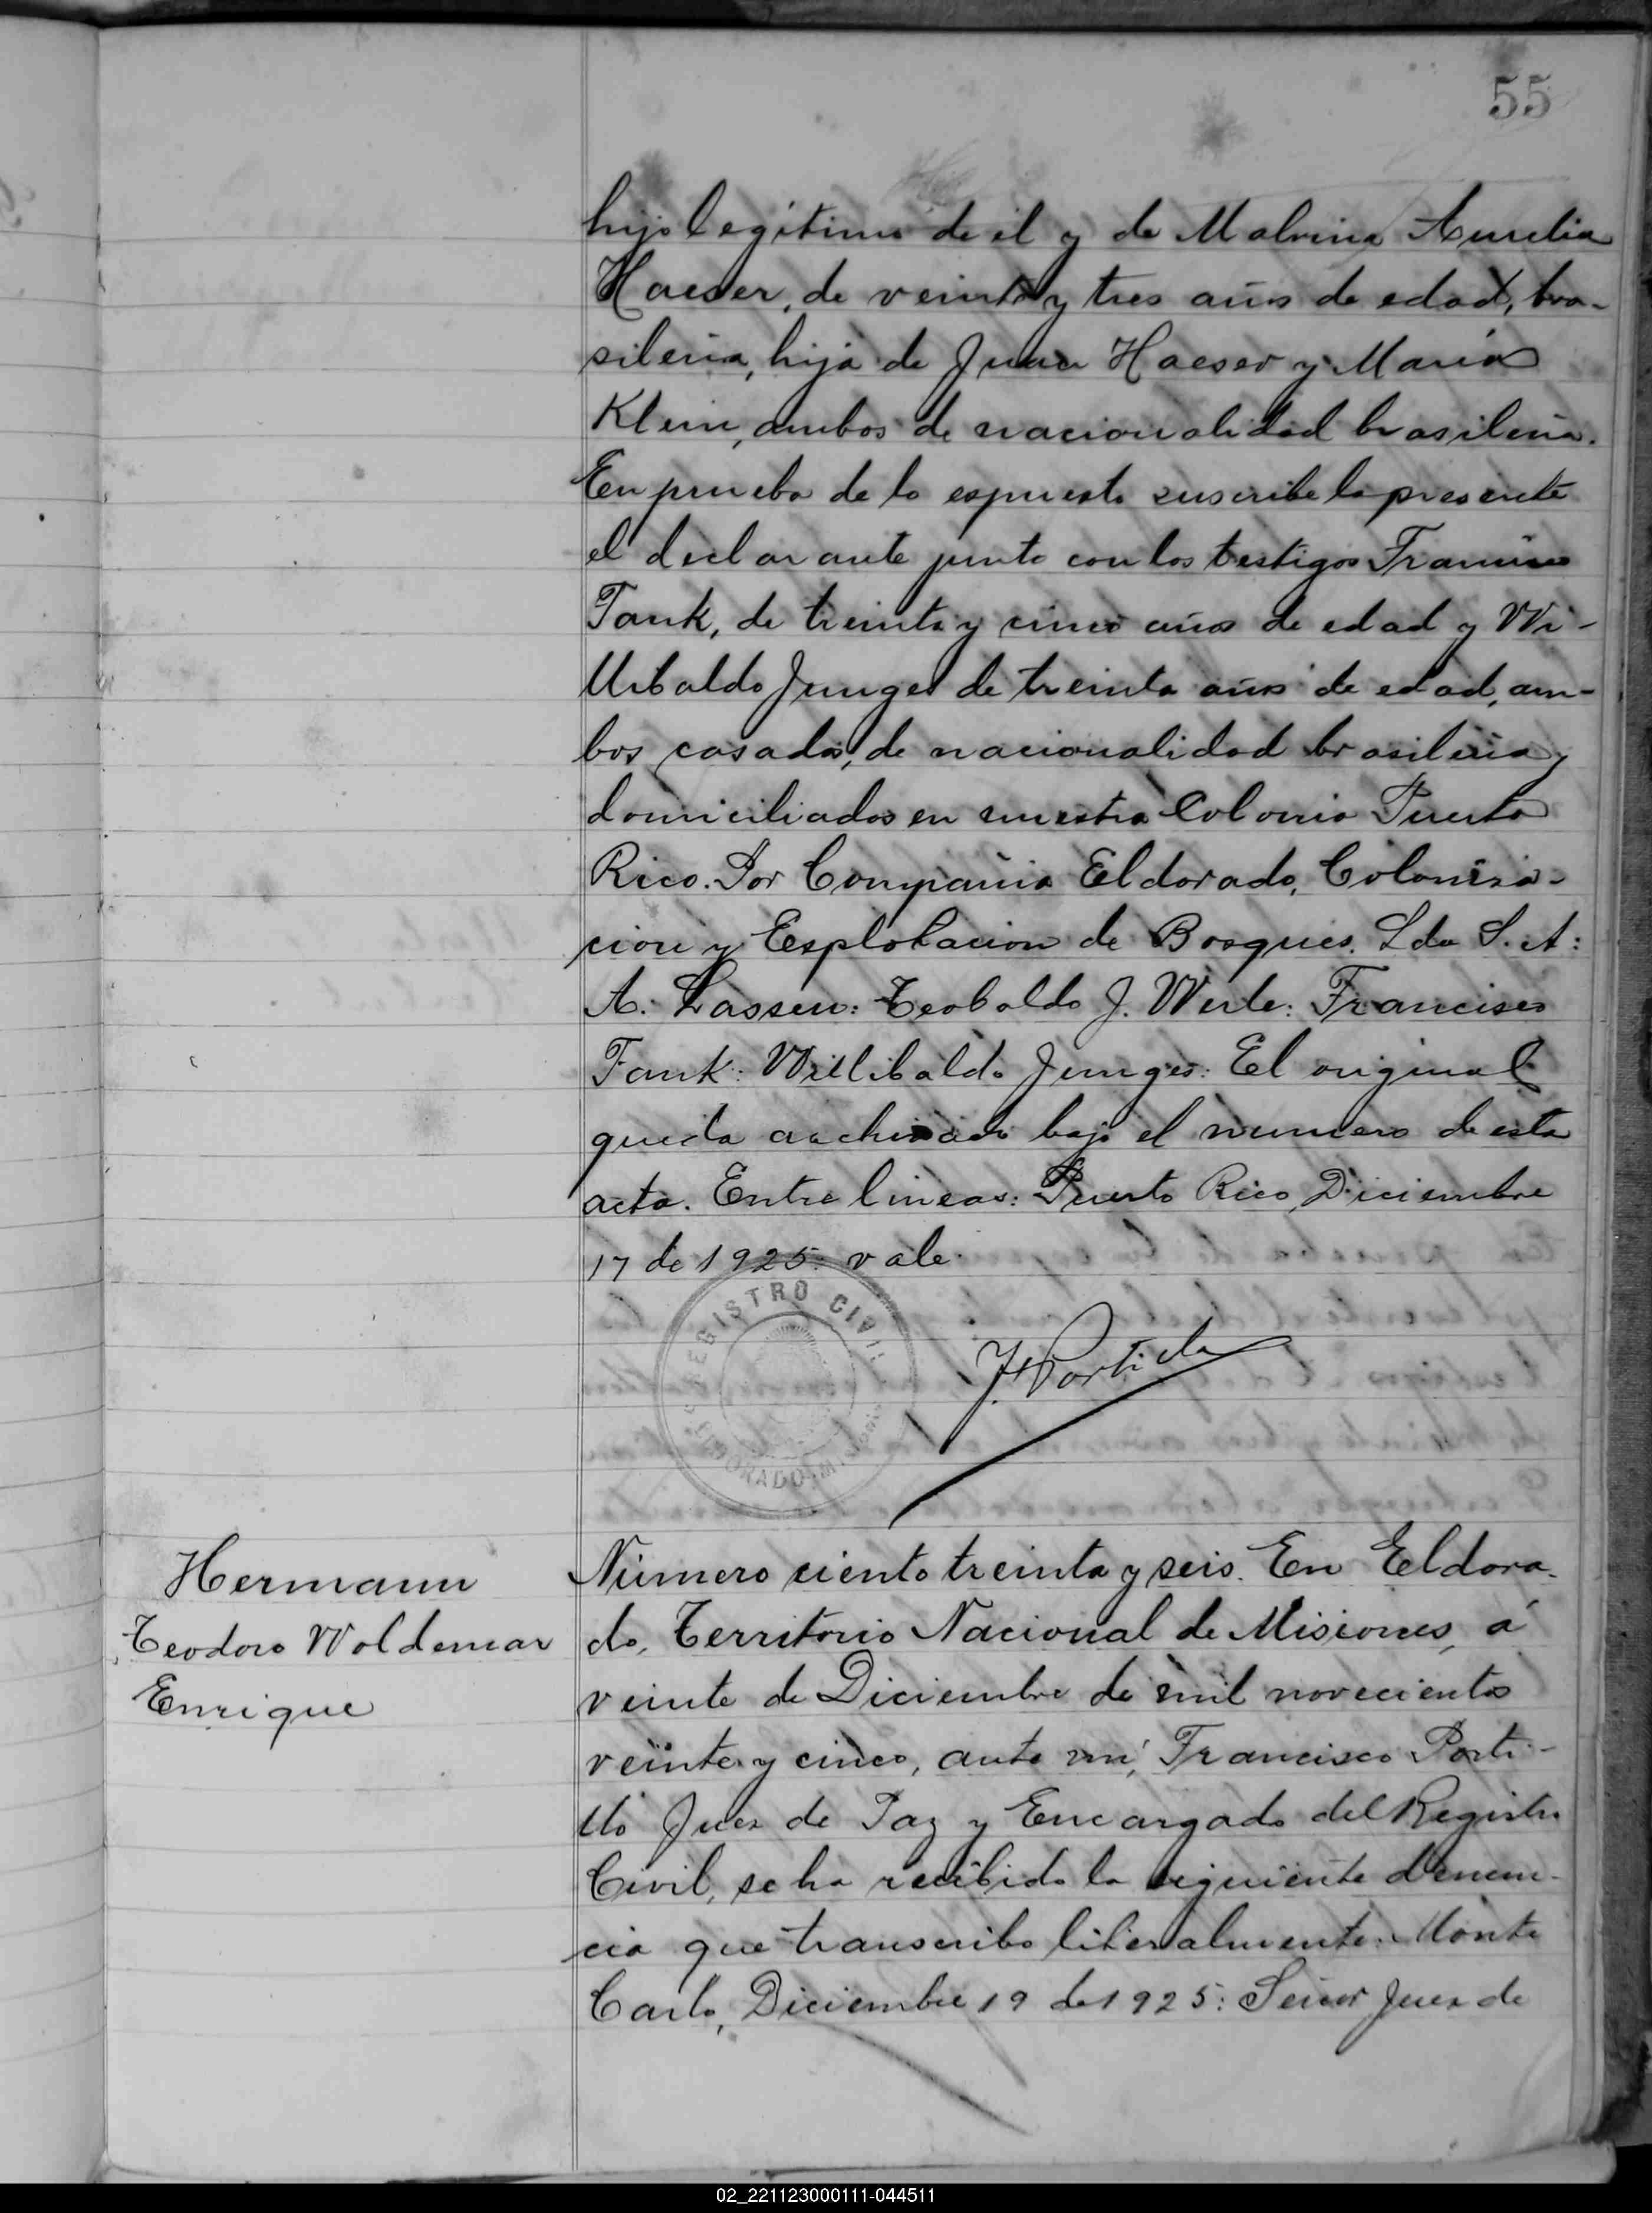 55
hijo legítimo de él y de Malvina Aurelia
Haeser, de veinte y tres años de edad, bra-
sileña, hija de Juan Haeser y María
Klein, ambos de nacionalidad brasileña.
En prueba de lo espuesto suscribe la presente
el declarante junto con los testigos Francisco
Fank, de treinta y cinco años de edad y Wi-
llibaldo Junges de treinta años de edad, am-
bos casados, de nacionalidad brasileña y
domiciliados en nuestra Colonia Puerto
Rico. Por Compañia Eldorado, Coloniza-
cion y Esplotacion de Bosques. Lda S. A:
A. Lassen: Teobaldo J. Werle: Francisco
Fank: Willibaldo Junges: El original
queda archivado bajo el numero de esta
acta. Entre lineas: Puerto Rico, Diciembre
17 de 1925: vale.
REGISTRO CIVIL
ELDORADO
F. Portillo
Hermann
Teodoro Woldemar
Enrique
Número ciento treinta y seis. En Eldora-
do, Territorio Nacional de Misiones, á
veinte de Diciembre de mil novecientos
veinte y cinco, ante mí, Francisco Porti-
llo Juez de Paz y Encargado del Registro
Civil, se ha recibido la siguiente denun-
cia que transcribo literalmente: Monte
Carlo, Diciembre 19 de 1925: Señor Juez de
02_221123000111-044511